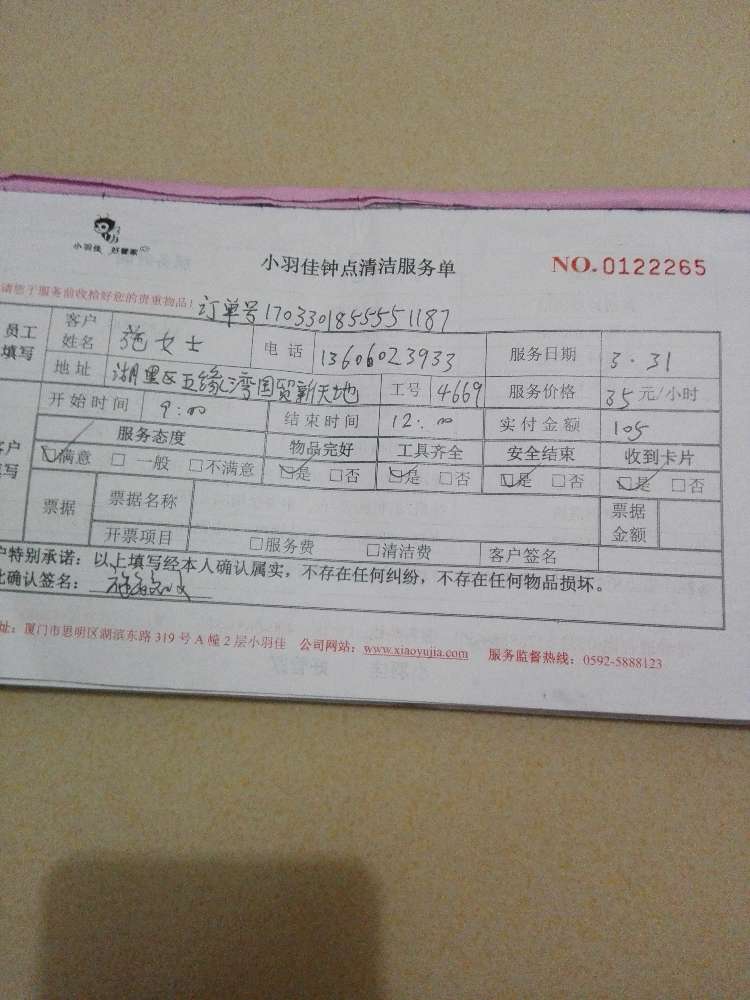 小羽佳 好管家
小羽佳钟点清洁服务单 NO.0122265
请您于服务前收拾好您的贵重物品！ 订单号17033018555551187
员工填写 客户姓名 施女士 电话 13606023933 服务日期 3.31
地址 湖里区五缘湾国贸新天地 工号 4669 服务价格 35元/小时
开始时间 9:00 结束时间 12:00 实付金额 105
服务态度 物品完好 工具齐全 安全结束 收到卡片
户 写 ☑满意 □一般 □不满意 ☑是 □否 ☑是 □否 ☑是 □否 ☑是 □否
票据 票据名称 票据金额
开票项目 □服务费 □清洁费 客户签名
户特别承诺：以上填写经本人确认属实，不存在任何纠纷，不存在任何物品损坏。
此确认签名：
址：厦门市思明区湖滨东路319号A幢2层小羽佳 公司网站：www.xiaoyujia.com 服务监督热线：0592-5888123